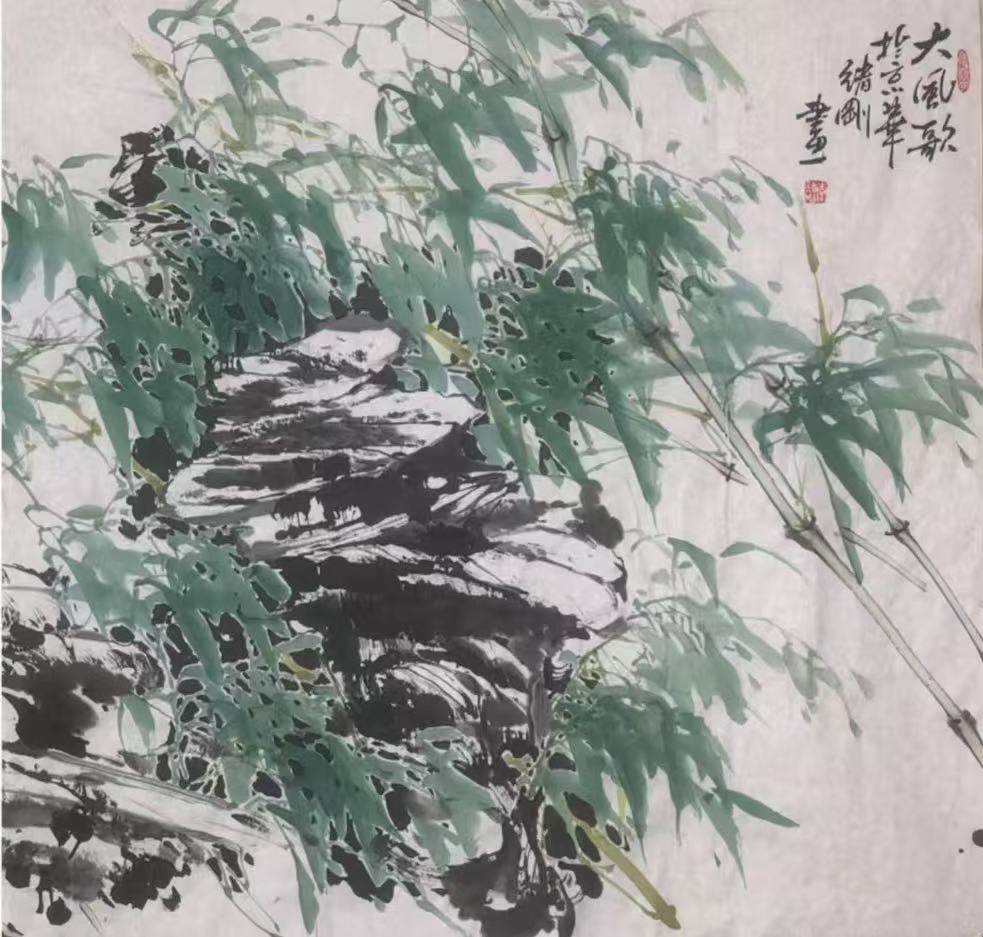 大風歌
於京華
緒剛
畫